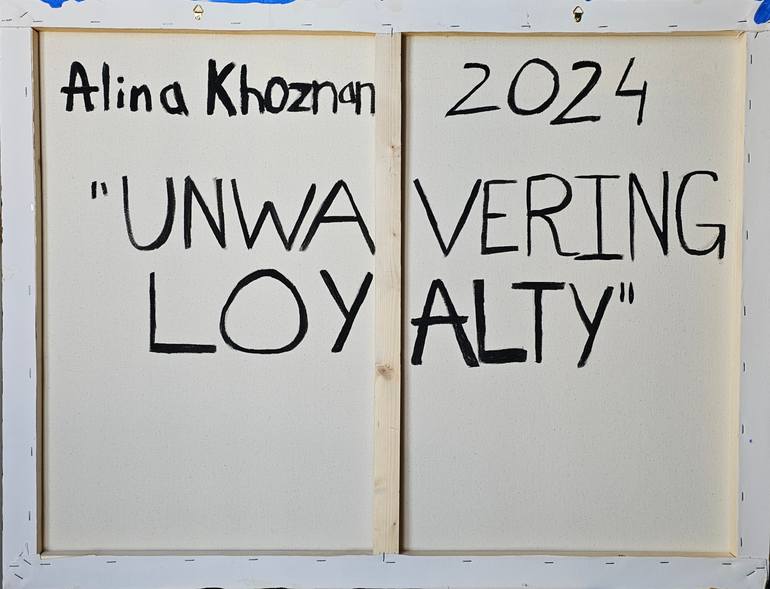 Alina Khoznan 2024
"UNWAVERING
LOYALTY"